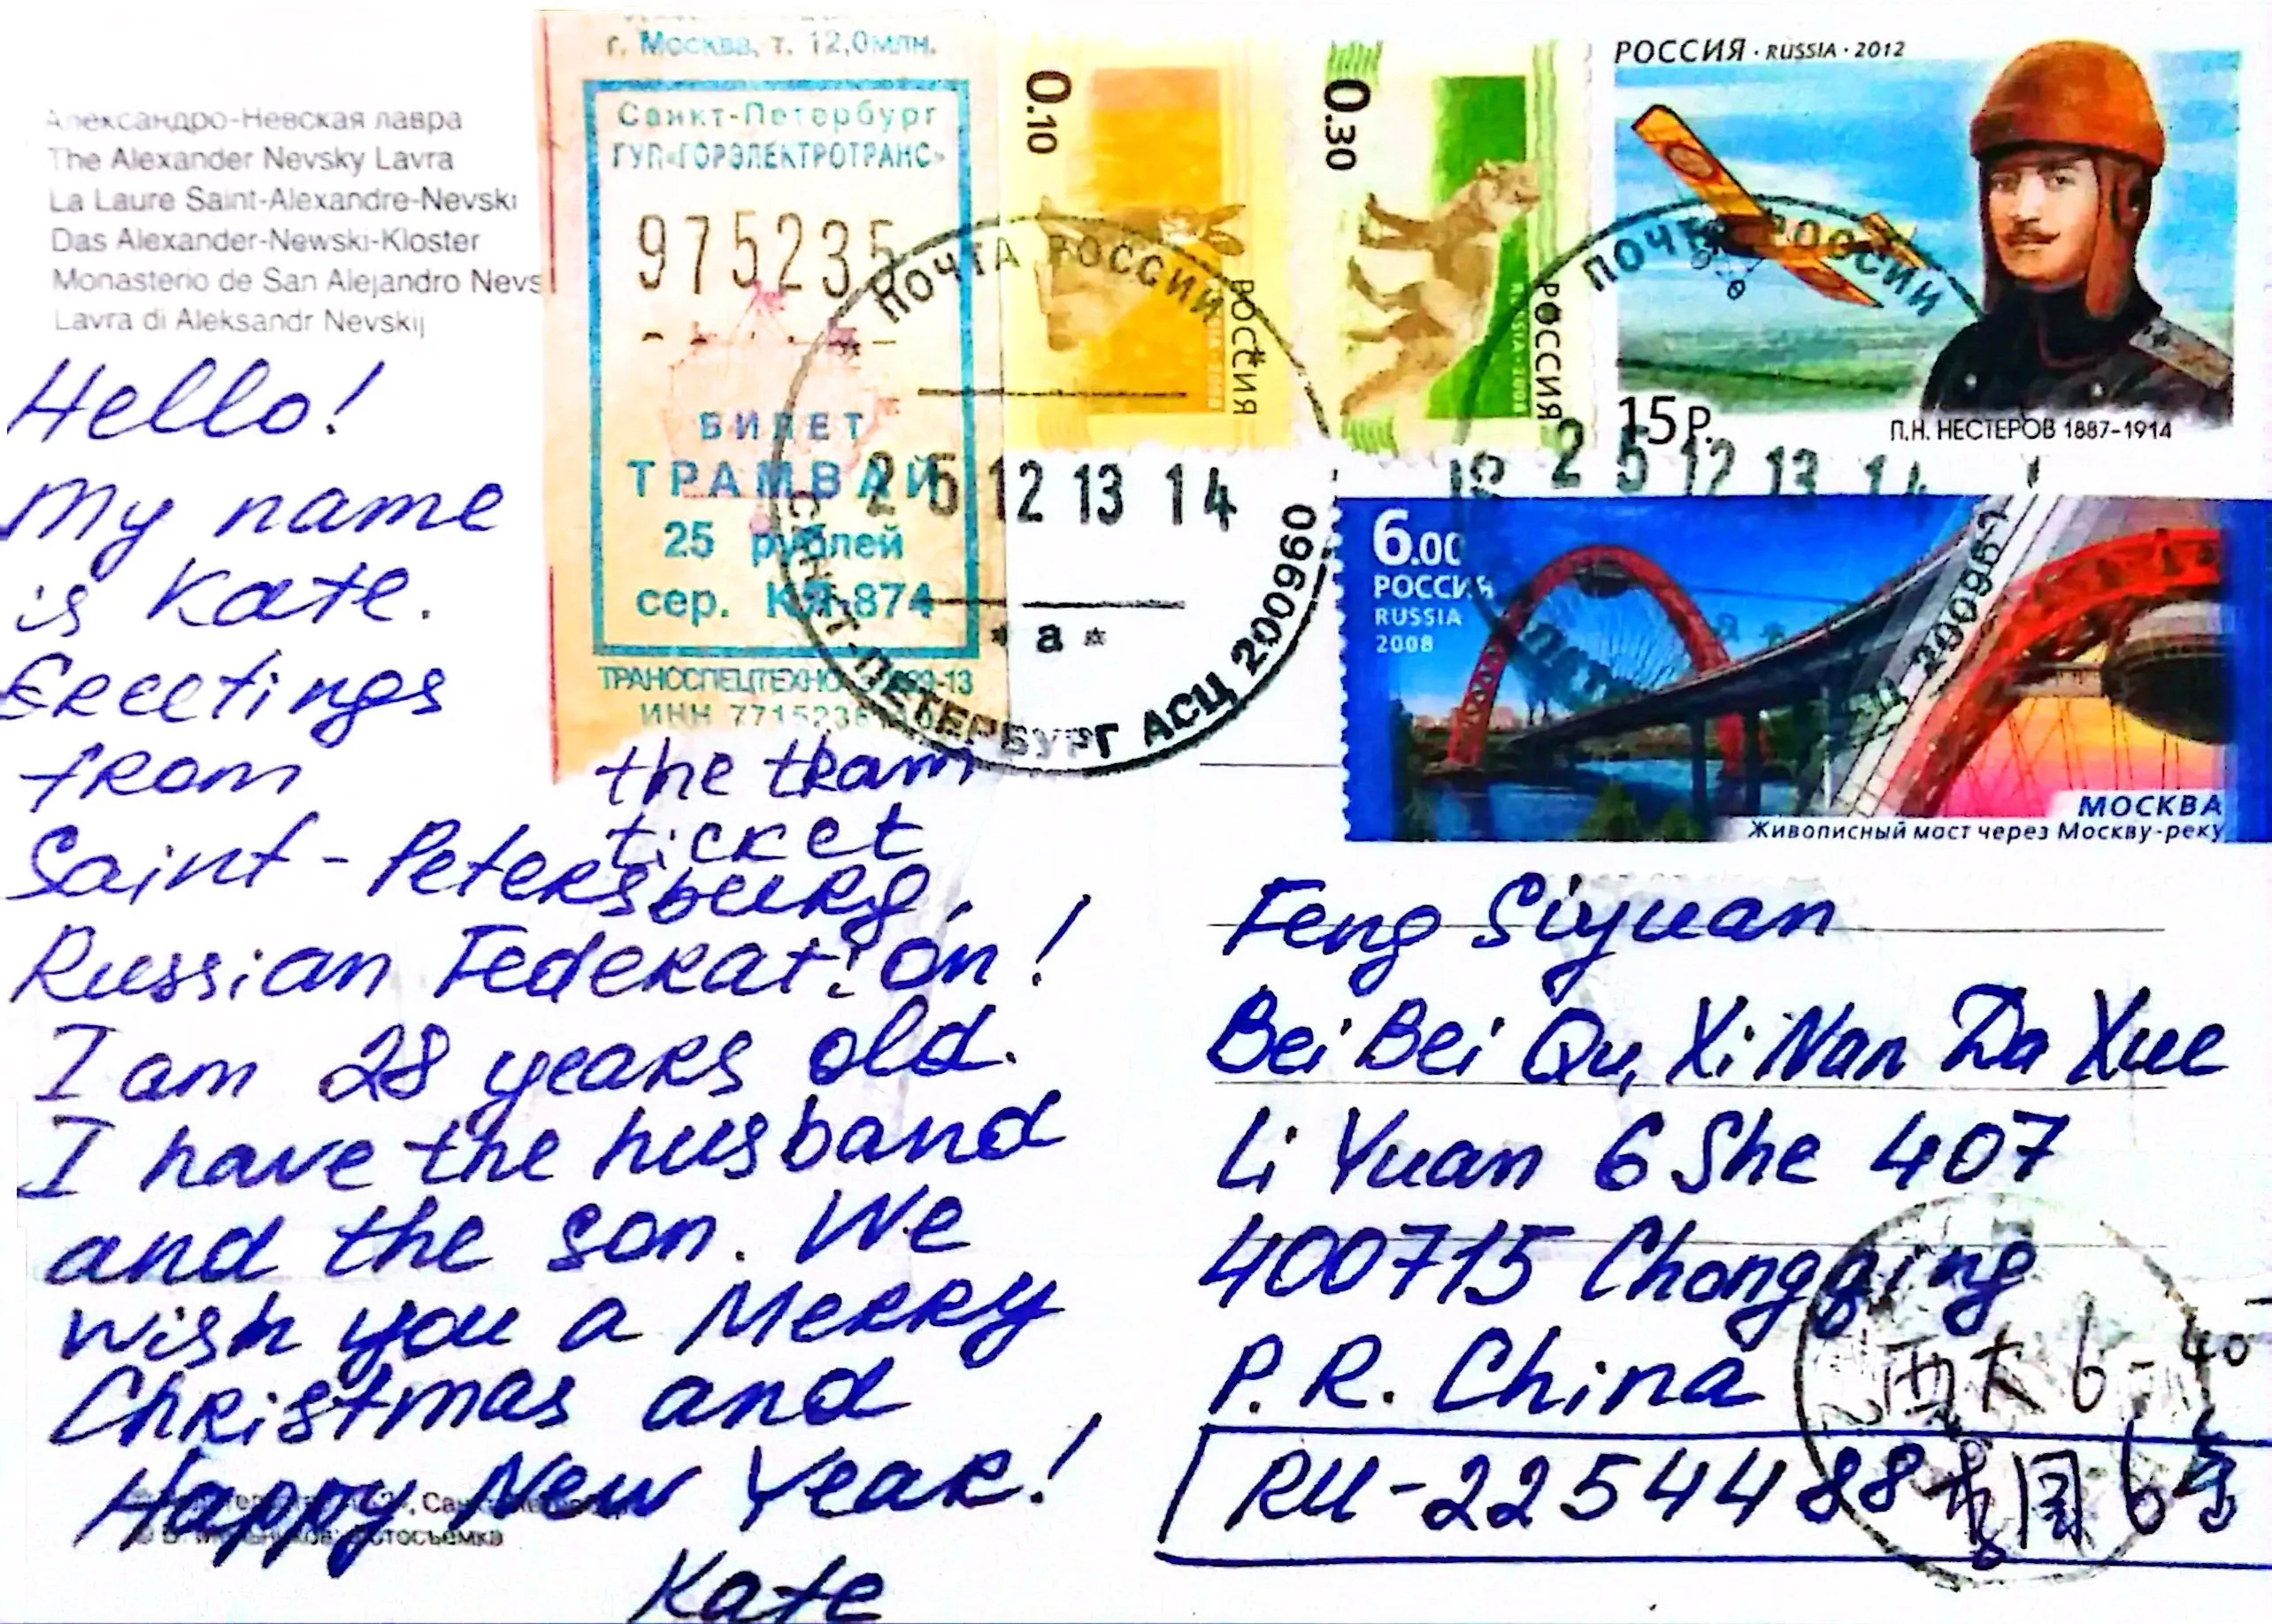 Александро-Невская лавра
The Alexander Nevsky Lavra
La Laure Saint-Alexandre-Nevski
Das Alexander-Newski-Kloster
Monasterio de San Alejandro Nevs
Lavra di Aleksandr Nevskij
г. Москва, т. 12,0млн.
Санкт-Петербург
ГУП«ГОРЭЛЕКТРОТРАНС»
975235
БИЛЕТ
ТРАМВАЙ
25 рублей
сер. КЯ-874
ТРАНССПЕЦТЕХНО
ИНН
0.10
РОССИЯ
0.30
РОССИЯ
РОССИЯ · RUSSIA · 2012
15 Р.
П.Н. НЕСТЕРОВ 1887-1914
6.00
РОССИЯ
RUSSIA
2008
МОСКВА
Живописный мост через Москву-реку
ПОЧТА РОССИИ
25 12 13 14
* а *
САНКТ-ПЕТЕРБУРГ АСЦ 200960
ПОЧТА РОССИИ
25 12 13 14
Hello!
My name
is Kate.
Greetings
from
Saint-Petersburg,
Russian Federation!
I am 28 years old.
I have the husband
and the son. We
wish you a Merry
Christmas and
Happy New Year!
Kate
the tram
ticket
Feng Siyuan
BeiBei Qu, XiNan Da Xue
Li Yuan 6 She 407
400715 Chongqing
P.R. China
RU-2254488
西大 6-40
园 6舍